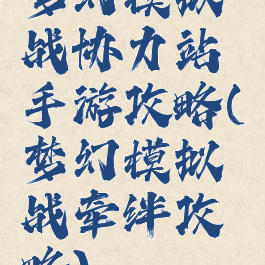 梦幻模拟
战协力站
手游攻略(
梦幻模拟
战牵绊攻
略)